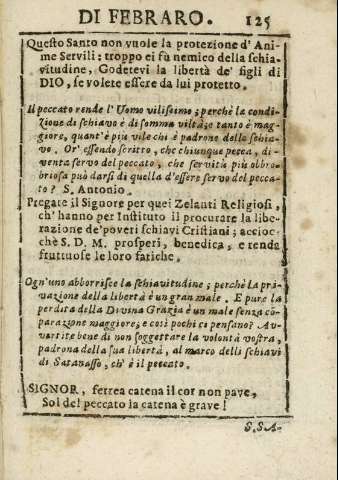 DI FEBRARO. 125
Questo Santo non vuole la protezione d' Ani-
me Servili; troppo ei fù nemico della schia-
vitudine, Godetevi la libertà de' figli di
DIO, se volete essere da lui protetto.
Il peccato rende l' Uomo vilissimo; perchè la condi-
zione di schiavo è di somma viltà; e tanto è mag-
giore, quant' è più vile chi è padrone dello schia-
vo. Or' essendo scritto, che chiunque pecca, di-
venta servo del peccato, che servitù più obbro-
briosa può darsi di quella d'essere servo del pecca-
to? S. Antonio.
Pregate il Signore per quei Zelanti Religiosi,
ch' hanno per Instituto il procurare la libe-
razione de' poveri schiavi Cristiani; accioc-
chè S. D. M. prosperi, benedica, e renda
fruttuose le loro fatiche.
Ogn' uno abborrisce la schiavitudine; perchè la pri-
vazione della libertà è un gran male. E pure la
perdita della Divina Grazia è un male senza co-
parazione maggiore; e così pochi ci pensano? Av-
vertite bene di non soggettare la volontà vostra,
padrona della sua libertà, al marco delli schiavi
di Satanasso, ch' è il peccato.
SIGNOR, ferrea catena il cor non pave,
Sol del peccato la catena è grave!
S.SA-